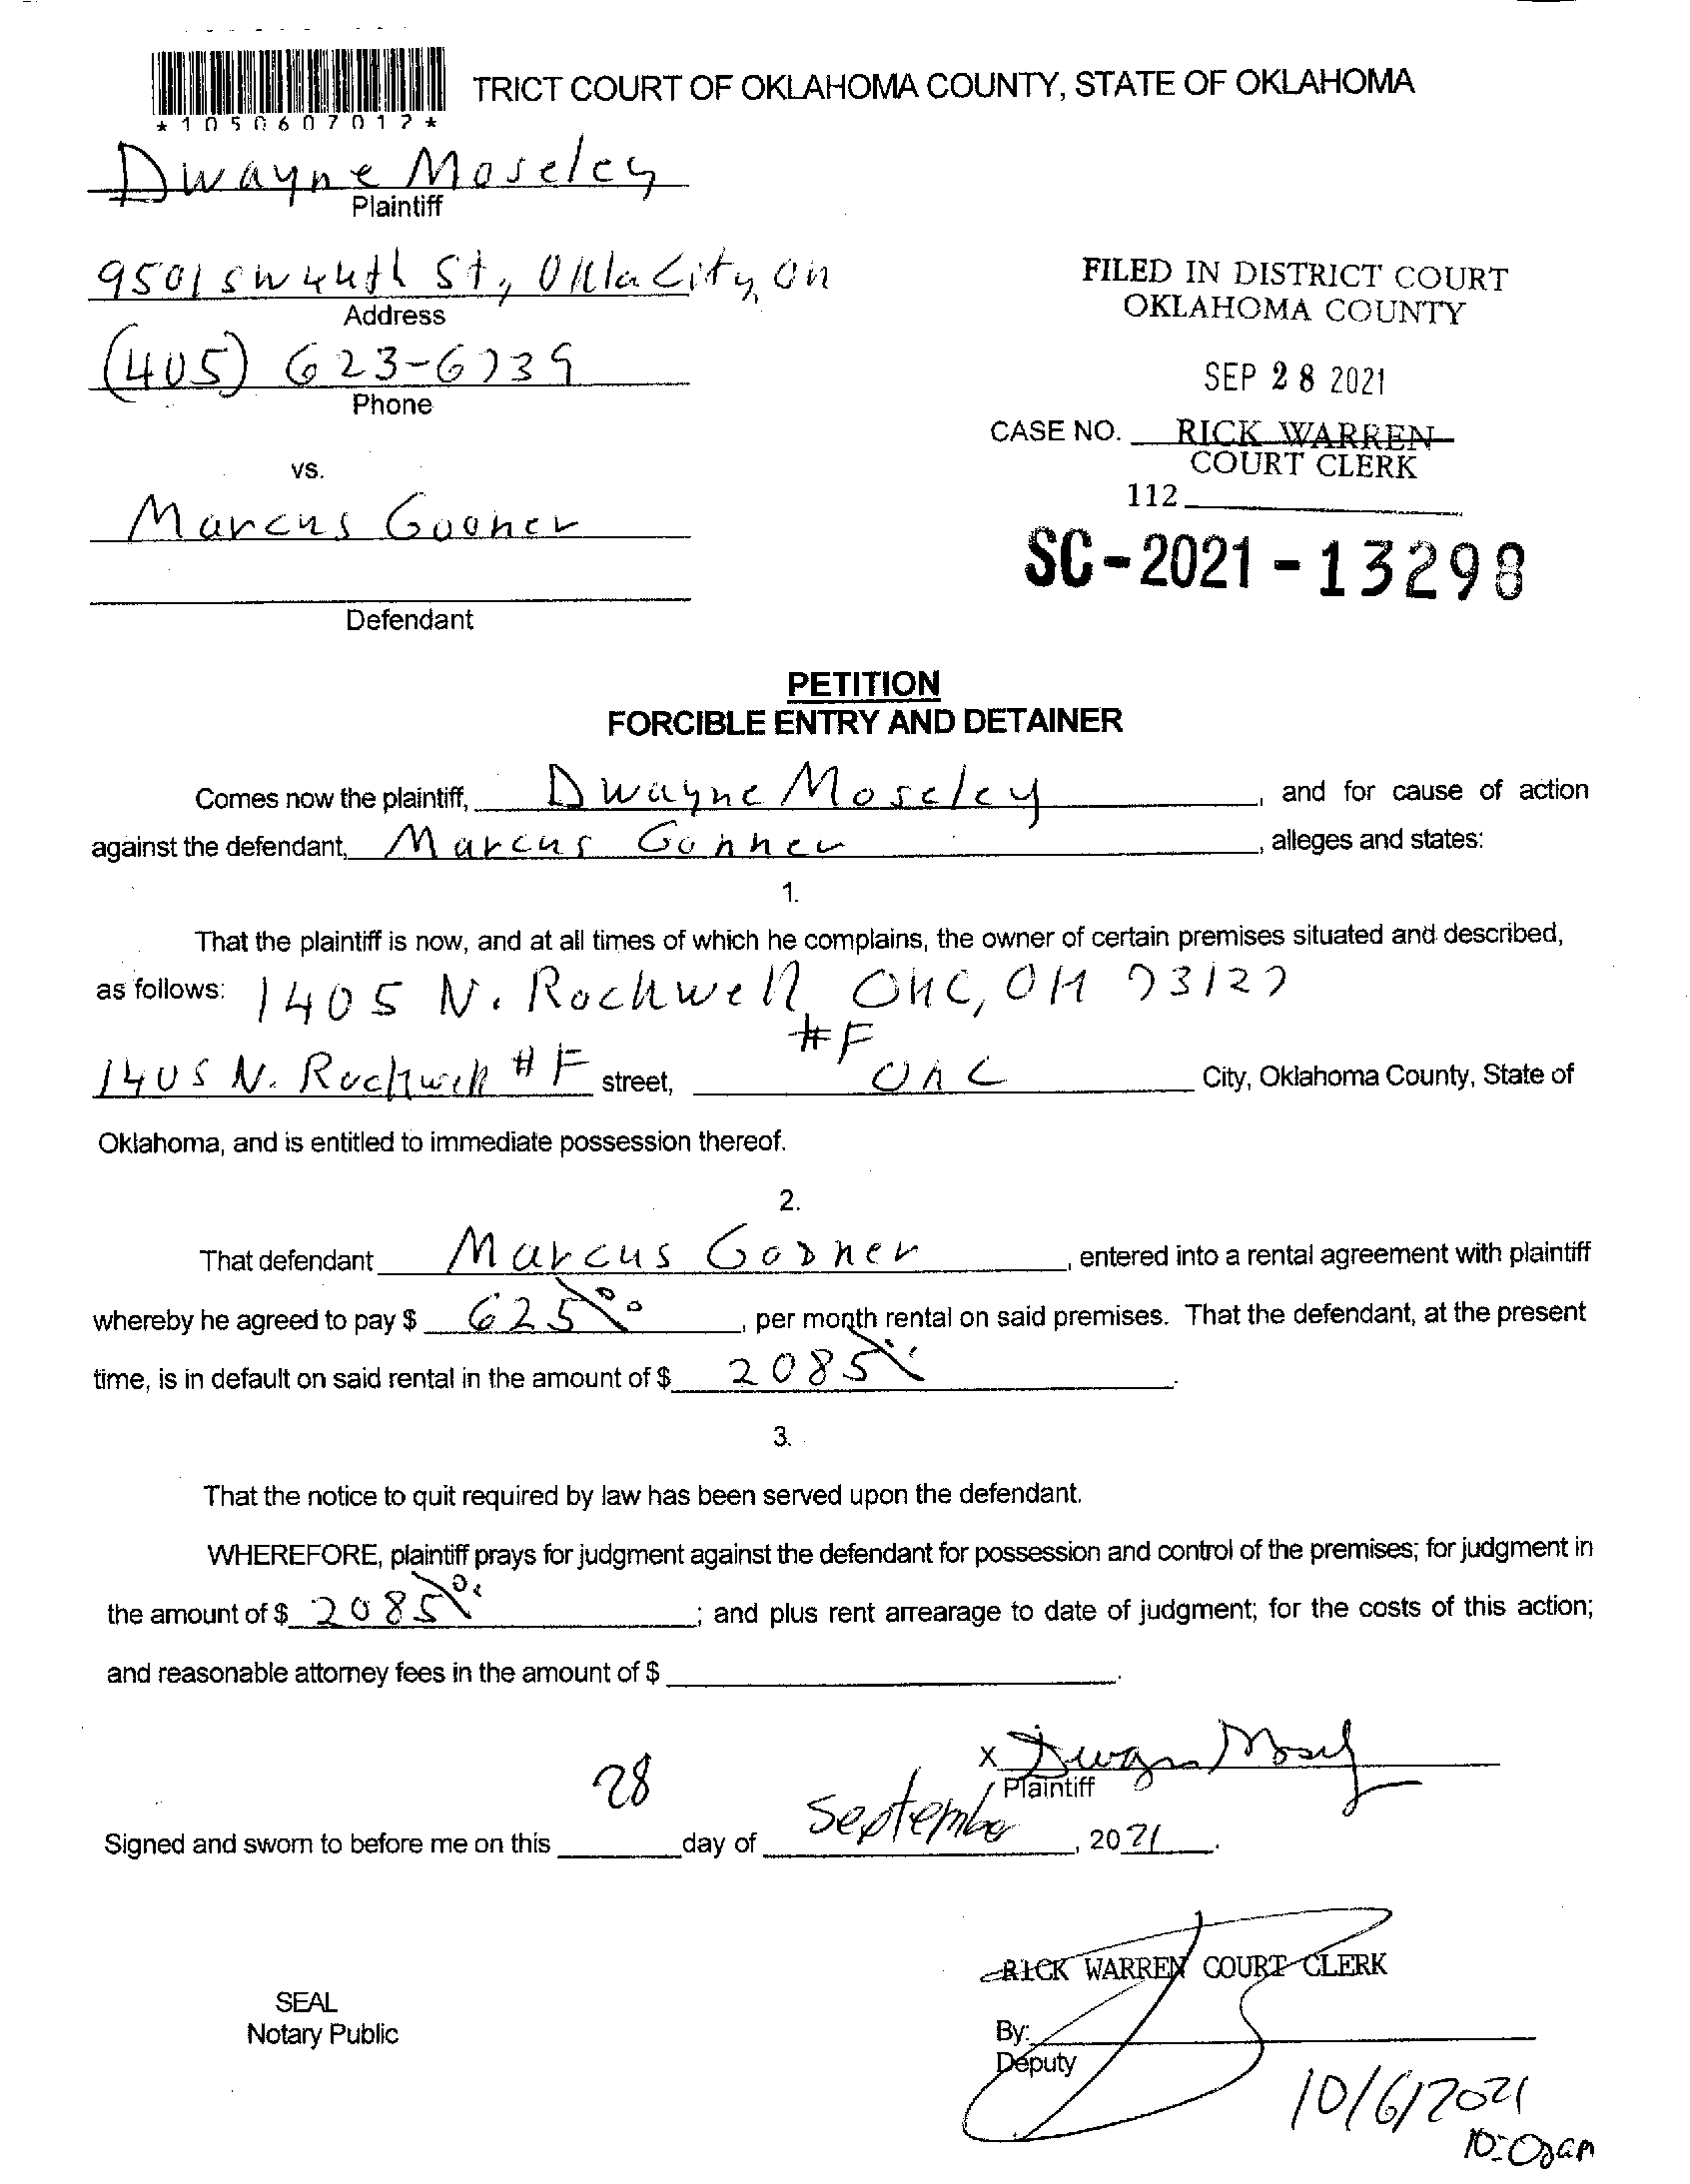 TRICT COURT OF OKLAHOMA COUNTY, STATE OF OKLAHOMA
*1050607017*
Dwayne Moseley
Plaintiff
9501 SW 44th St, Okla City, OK
Address
(405) 623-6739
Phone
FILED IN DISTRICT COURT
OKLAHOMA COUNTY
SEP 28 2021
CASE NO. RICK WARREN
COURT CLERK
112
SC-2021-13298
vs.
Marcus Gooner
Defendant
PETITION
FORCIBLE ENTRY AND DETAINER
Comes now the plaintiff, Dwayne Moseley, and for cause of action
against the defendant, Marcus Gonner, alleges and states:
1.
That the plaintiff is now, and at all times of which he complains, the owner of certain premises situated and described,
as follows: 1405 N. Rockwell OKC, OK 73127
#F
1405 N. Rockwell #F street, OKC City, Oklahoma County, State of
Oklahoma, and is entitled to immediate possession thereof.
2.
That defendant Marcus Gooner, entered into a rental agreement with plaintiff
whereby he agreed to pay $ 625 00, per month rental on said premises. That the defendant, at the present
time, is in default on said rental in the amount of $ 2085.
3.
That the notice to quit required by law has been served upon the defendant.
WHEREFORE, plaintiff prays for judgment against the defendant for possession and control of the premises; for judgment in
the amount of $ 2085; and plus rent arrearage to date of judgment; for the costs of this action;
and reasonable attorney fees in the amount of $.
x Dwayne Mosely
Plaintiff
Signed and sworn to before me on this 28 day of September, 2021.
RICK WARREN COURT CLERK
SEAL
Notary Public
By:
Deputy
10/6/2021
10:00am